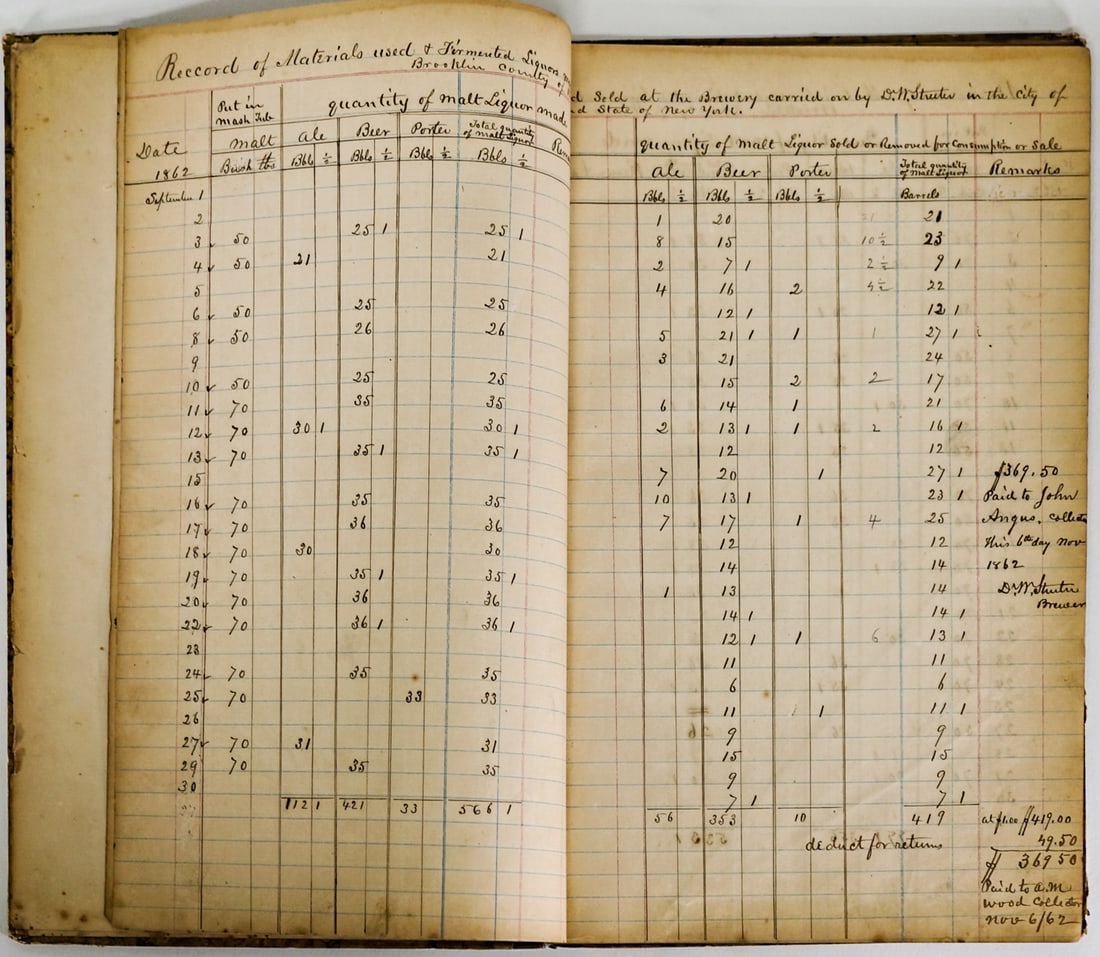 Reccord of Materials used & Firmented Liquors
Brooklin County of
Put in
mash Tub
quantity of malt Liquor made
Date
malt
ale
Beer
Porter
Total quantity
of malt Liquor
1862
Bush lbs
Bbls ½
Bbls ½
Bbls ½
Bbls ½
September 1
2
3 50 25 1 25 1
4 50 21 21
5
6 50 25 25
8 50 26 26
9
10 50 25 25
11 70 35 35
12 70 30 1 30 1
13 70 35 1 35 1
15
16 70 35 35
17 70 36 36
18 70 30 30
19 70 35 1 35 1
20 70 36 36
22 70 36 1 36 1
23
24 70 35 35
25 70 33 33
26
27 70 31 31
29 70 35 35
30
112 1 421 33 566 1
d Sold at the Brewery carried on by D. W. Streeter in the City of
d State of New York.
quantity of malt Liquor Sold or Removed for Consumption or Sale
ale
Beer
Porter
Total quantity
of malt Liquor
Remarks
Bbls ½
Bbls ½
Bbls ½
Barrels
1 20 21 21
8 15 10½ 23
2 7 1 2½ 9 1
4 16 2 22
12 1 12 1
5 21 1 1 1 27 1
3 21 24
15 2 2 17
6 14 1 21
2 13 1 1 2 16 1
12 12
7 20 1 27 1 $369.50
10 13 1 23 1 Paid to John
7 17 1 4 25 Angus. Collector
12 12 this 6th day Nov
14 14 1862
1 13 14 D. W. Streeter
Brewer
14 1 14 1
12 1 1 6 13 1
11 11
6 6
11 1 11 1
9 9
15 15
9 9
7 1 7 1
56 353 10 419 at $1.00 $419.00
deduct for returns 49.50
$ 369 50
Paid to A. M
Wood Collector
Nov 6/62